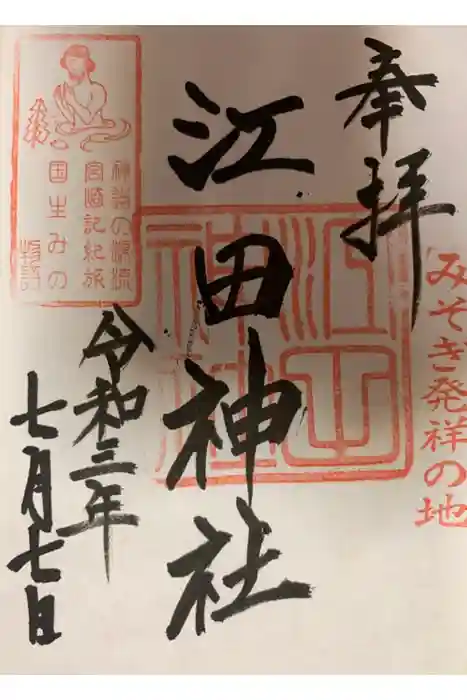 奉拝
みそぎ発祥の地
江田神社
令和三年
七月七日
江田神社
神話の源流
宮崎記紀旅
国生みの